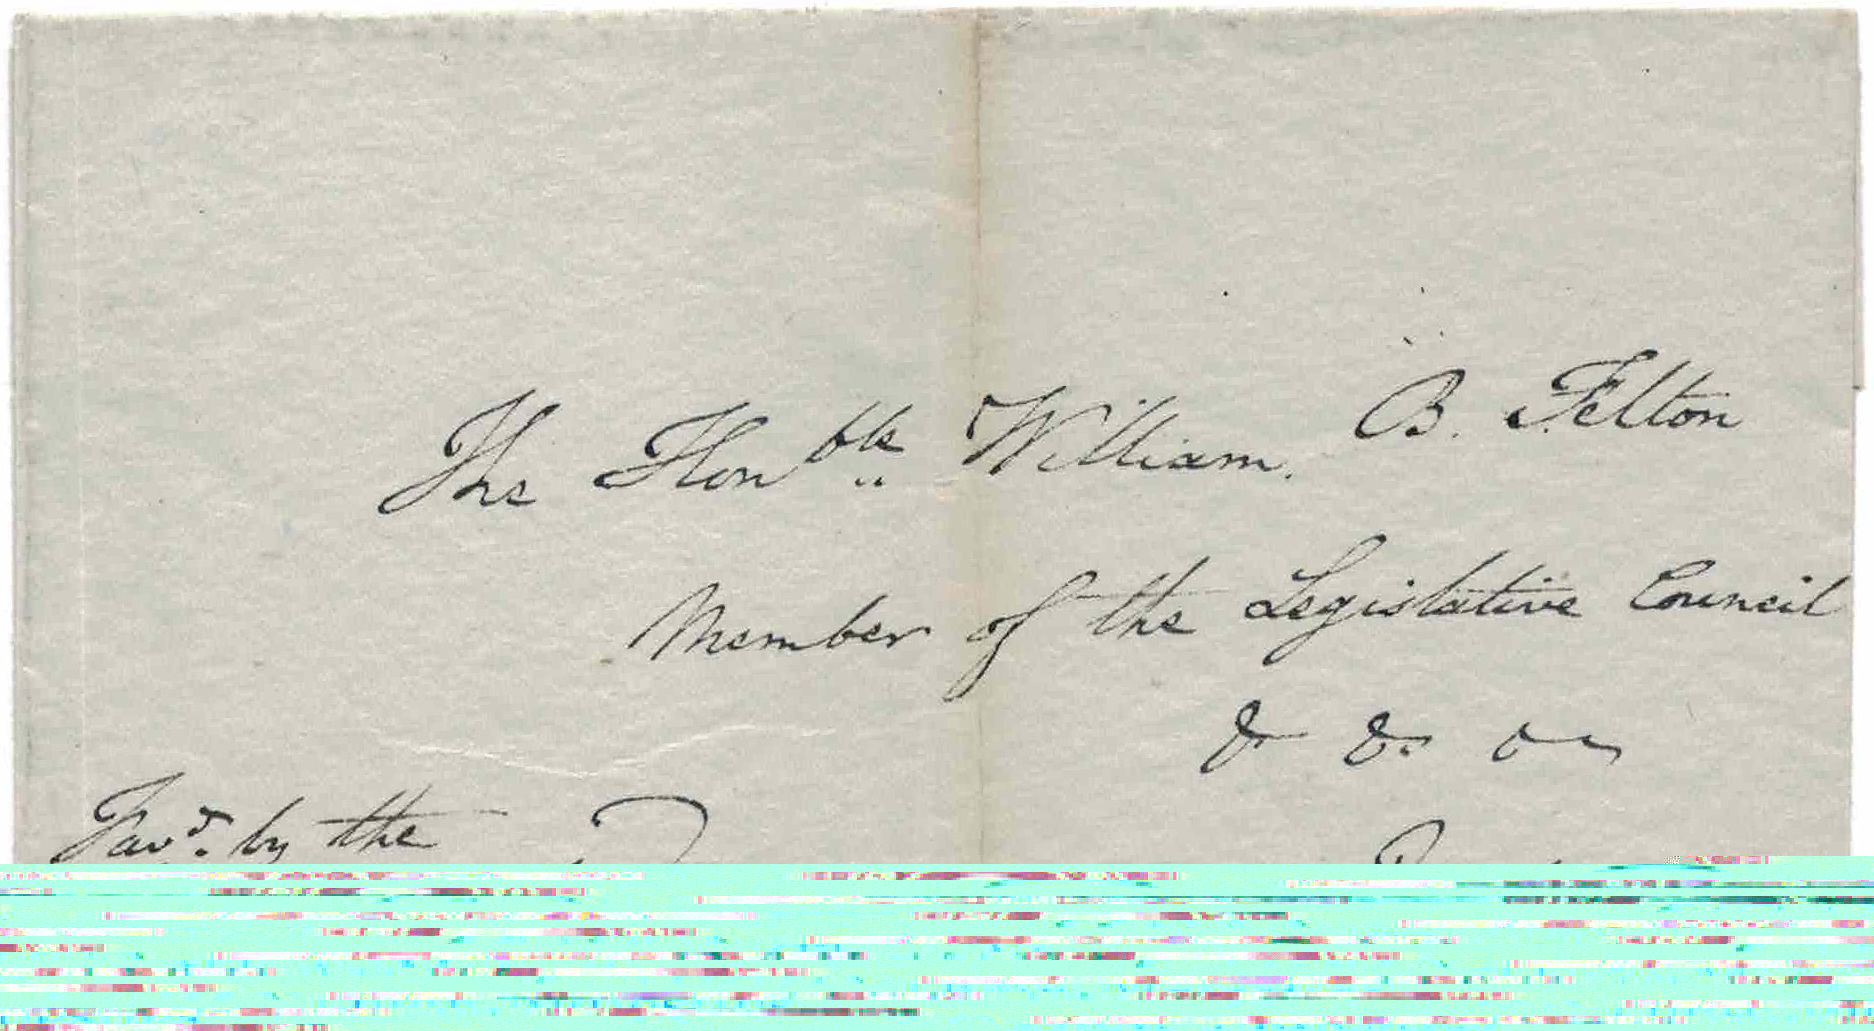 The Honble William B. Felton
Member of the Legislative Council
& & &
Favd. by the